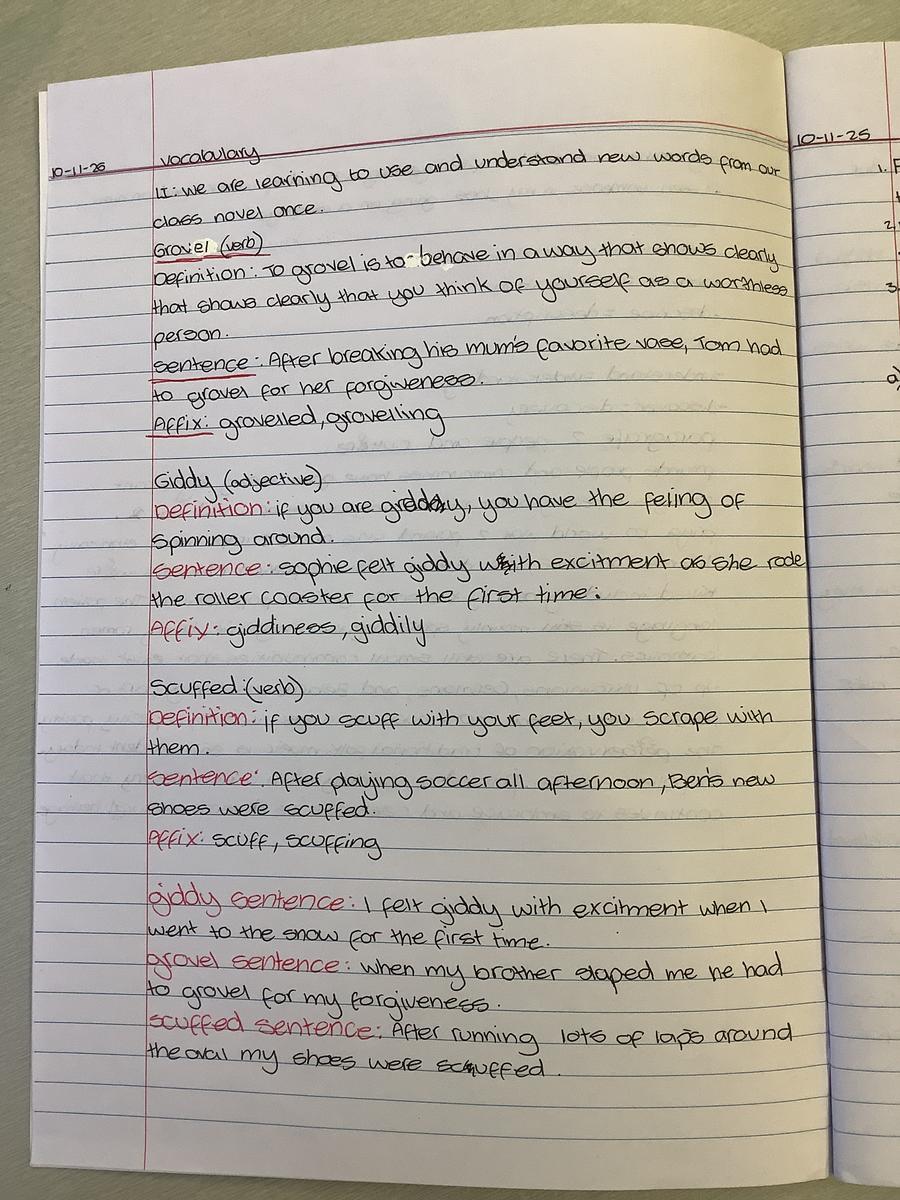 10-11-25
vocabulary
LI: we are learning to use and understand new words from our
class novel once.
Grovel (verb)
Definition: To grovel is to behave in a way that shows clearly
that shows clearly that you think of yourself as a worthless
person.
sentence: After breaking his mum's favorite vase, Tom had
to grovel for her forgiveness.
Affix: grovelled, grovelling
Giddy (adjective)
Definition: if you are giddy, you have the feling of
spinning around.
sentence: sophie felt giddy with excitment as she rode
the roller coaster for the first time.
Affix: giddiness, giddily
Scuffed: (verb)
Definition: if you scuff with your feet, you scrape with
them.
sentence: After playing soccer all afternoon, Ben's new
shoes were scuffed.
Affix: scuff, scuffing
giddy sentence: I felt giddy with excitment when I
went to the snow for the first time.
grovel sentence: when my brother slaped me he had
to grovel for my forgiveness.
scuffed sentence: After running lots of laps around
the oval my shoes were scuffed.
10-11-25
1.
2.
3.
a)